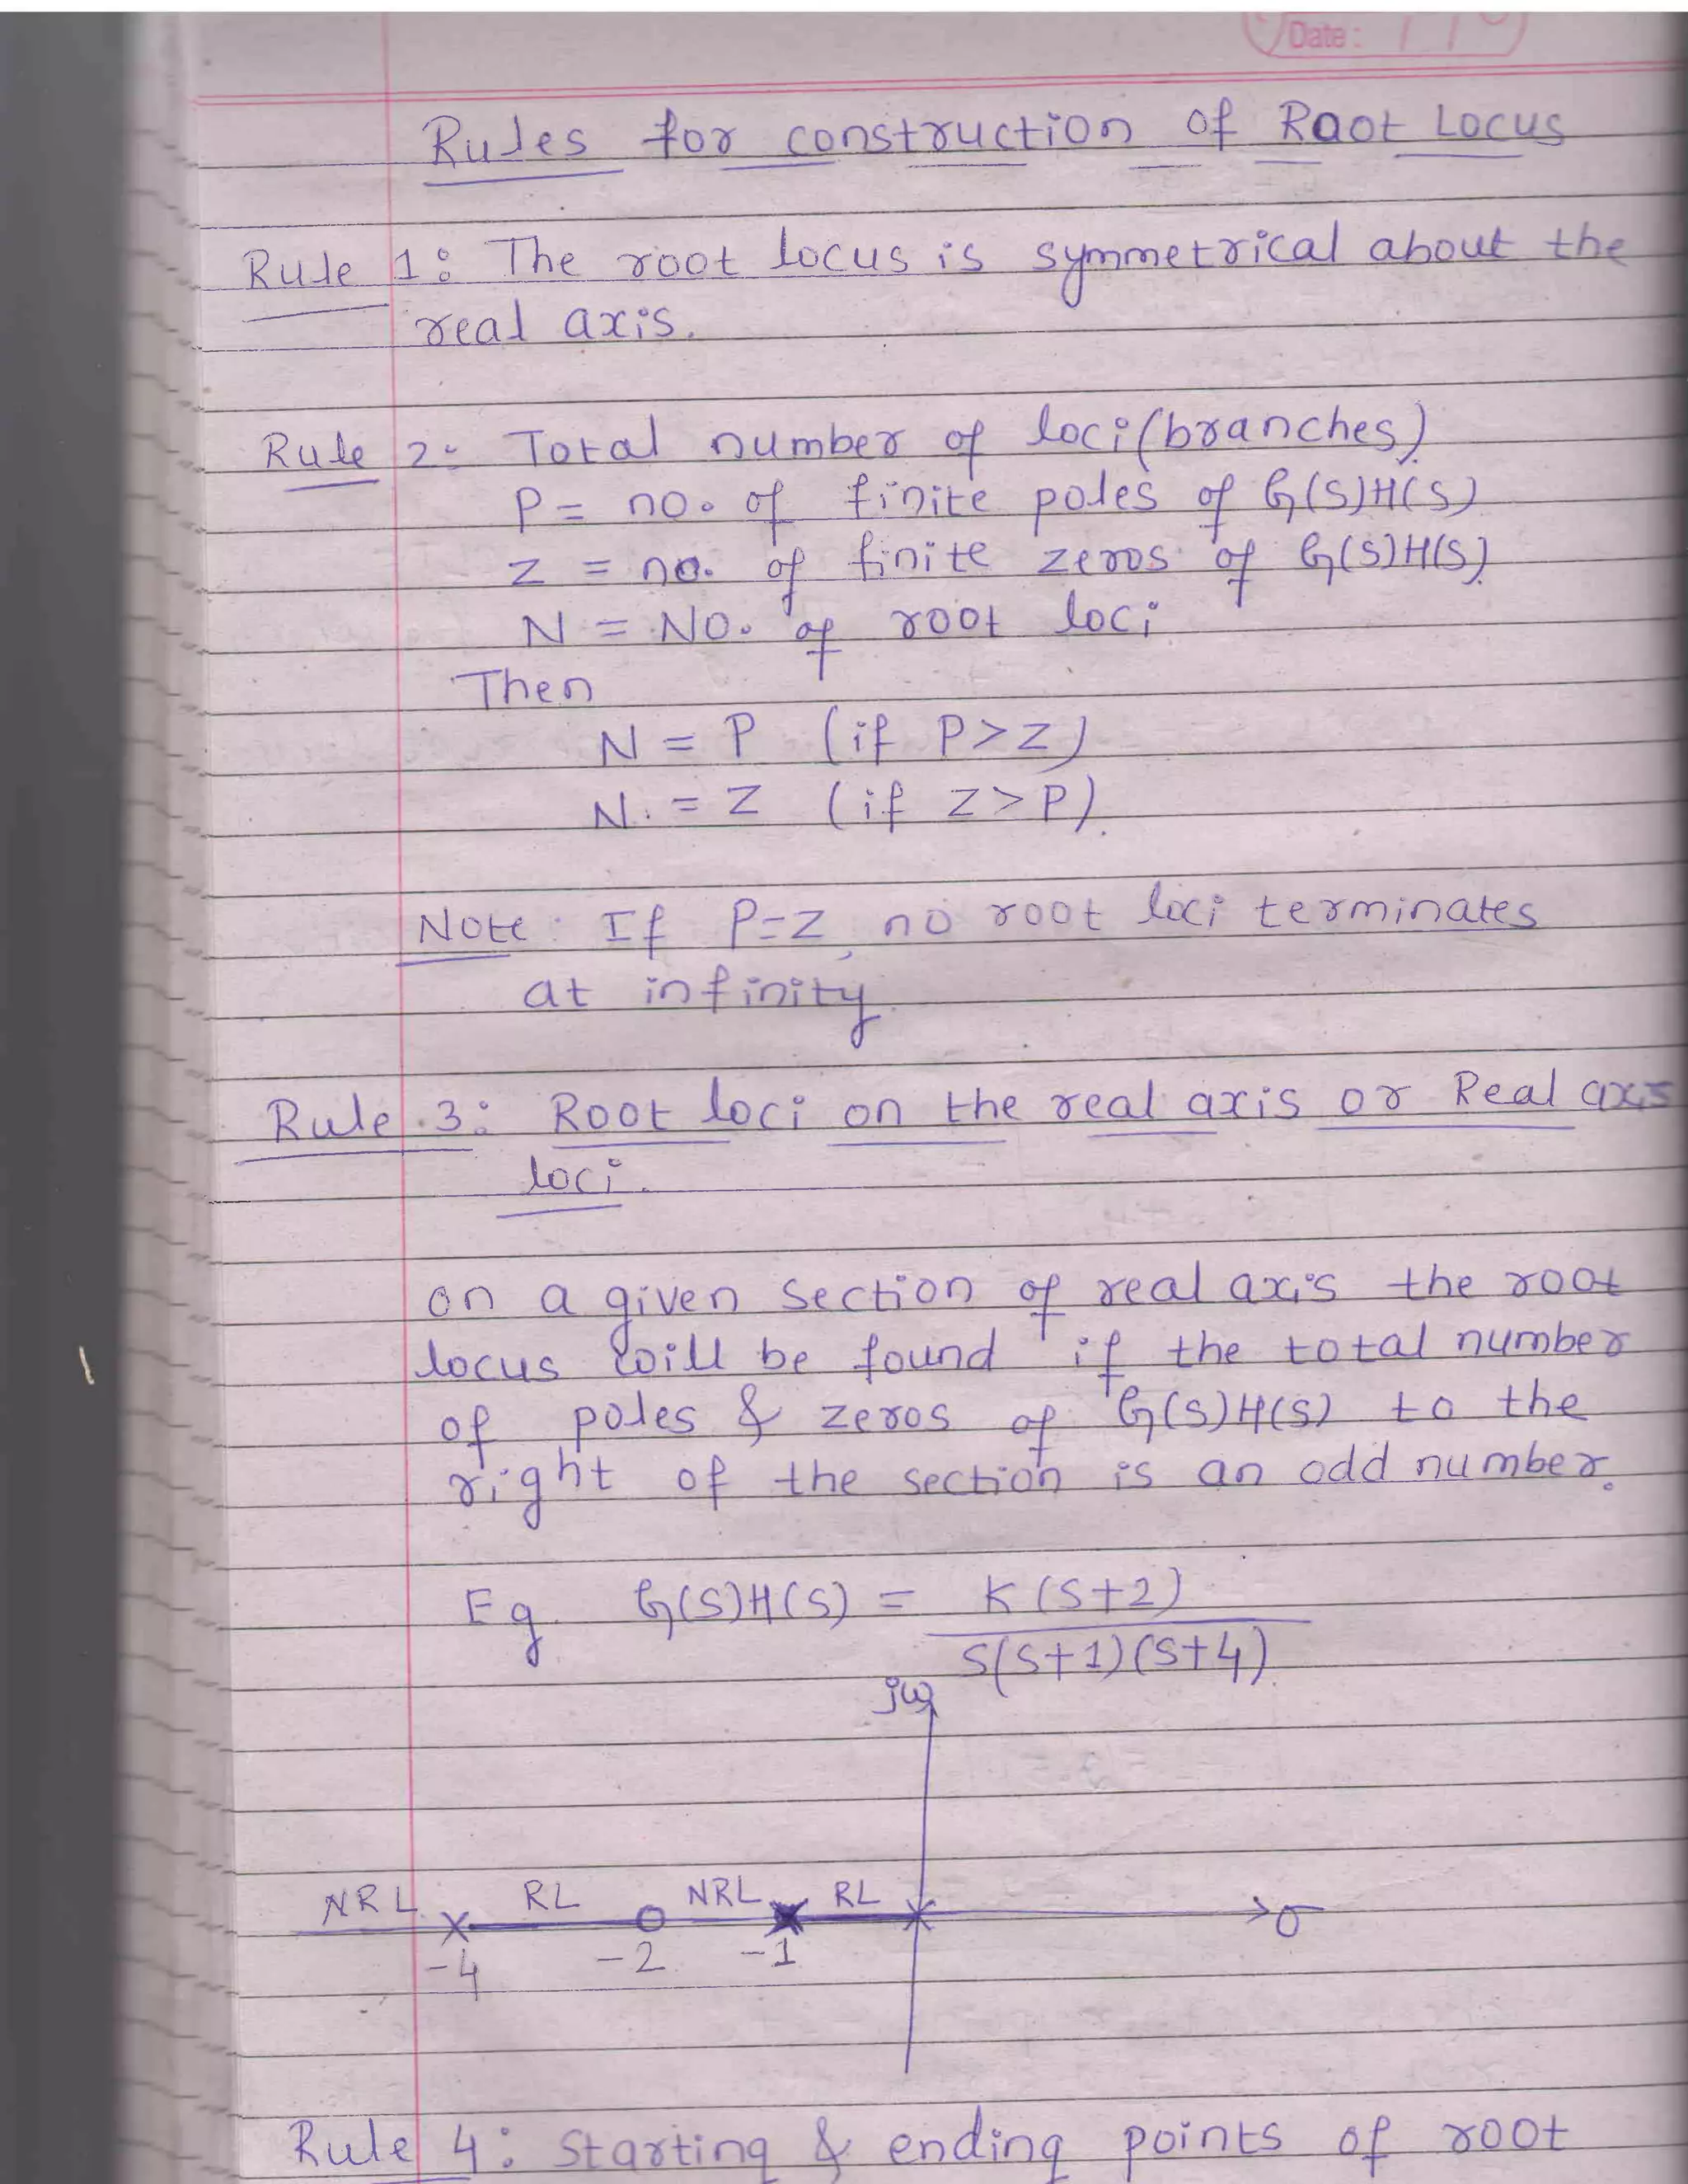 Date: / /
Rules for construction of Root Locus
Rule 1: The root locus is symmetrical about the
real axis.
Rule 2: Total number of loci (branches)
P = no. of finite poles of G(S)H(S)
Z = no. of finite zeros of G(S)H(S)
N = No. of root loci
Then
N = P (if P>Z)
N = Z (if Z>P)
Note: If P=Z, no root loci terminates
at infinity
Rule 3: Root loci on the real axis or Real axis
loci.
on a given section of real axis the root
locus will be found if the total number
of poles & zeros of G(S)H(S) to the
right of the section is an odd number.
Eg. G(S)H(S) = K(S+2)
S(S+1)(S+4)
jω
NRL RL NRL RL
σ
-4 -2 -1
Rule 4: Starting & ending points of root